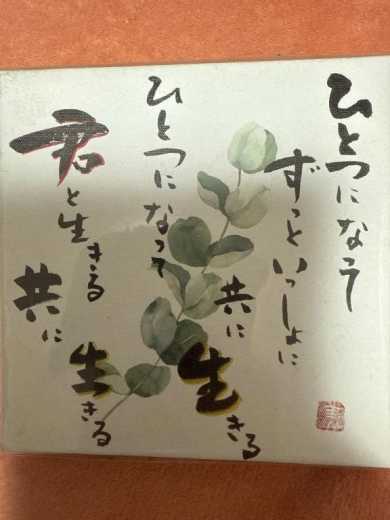 ひとつになろう
ずっといっしょに
共に
生きる
ひとつになって
君と生きる
共に
生きる